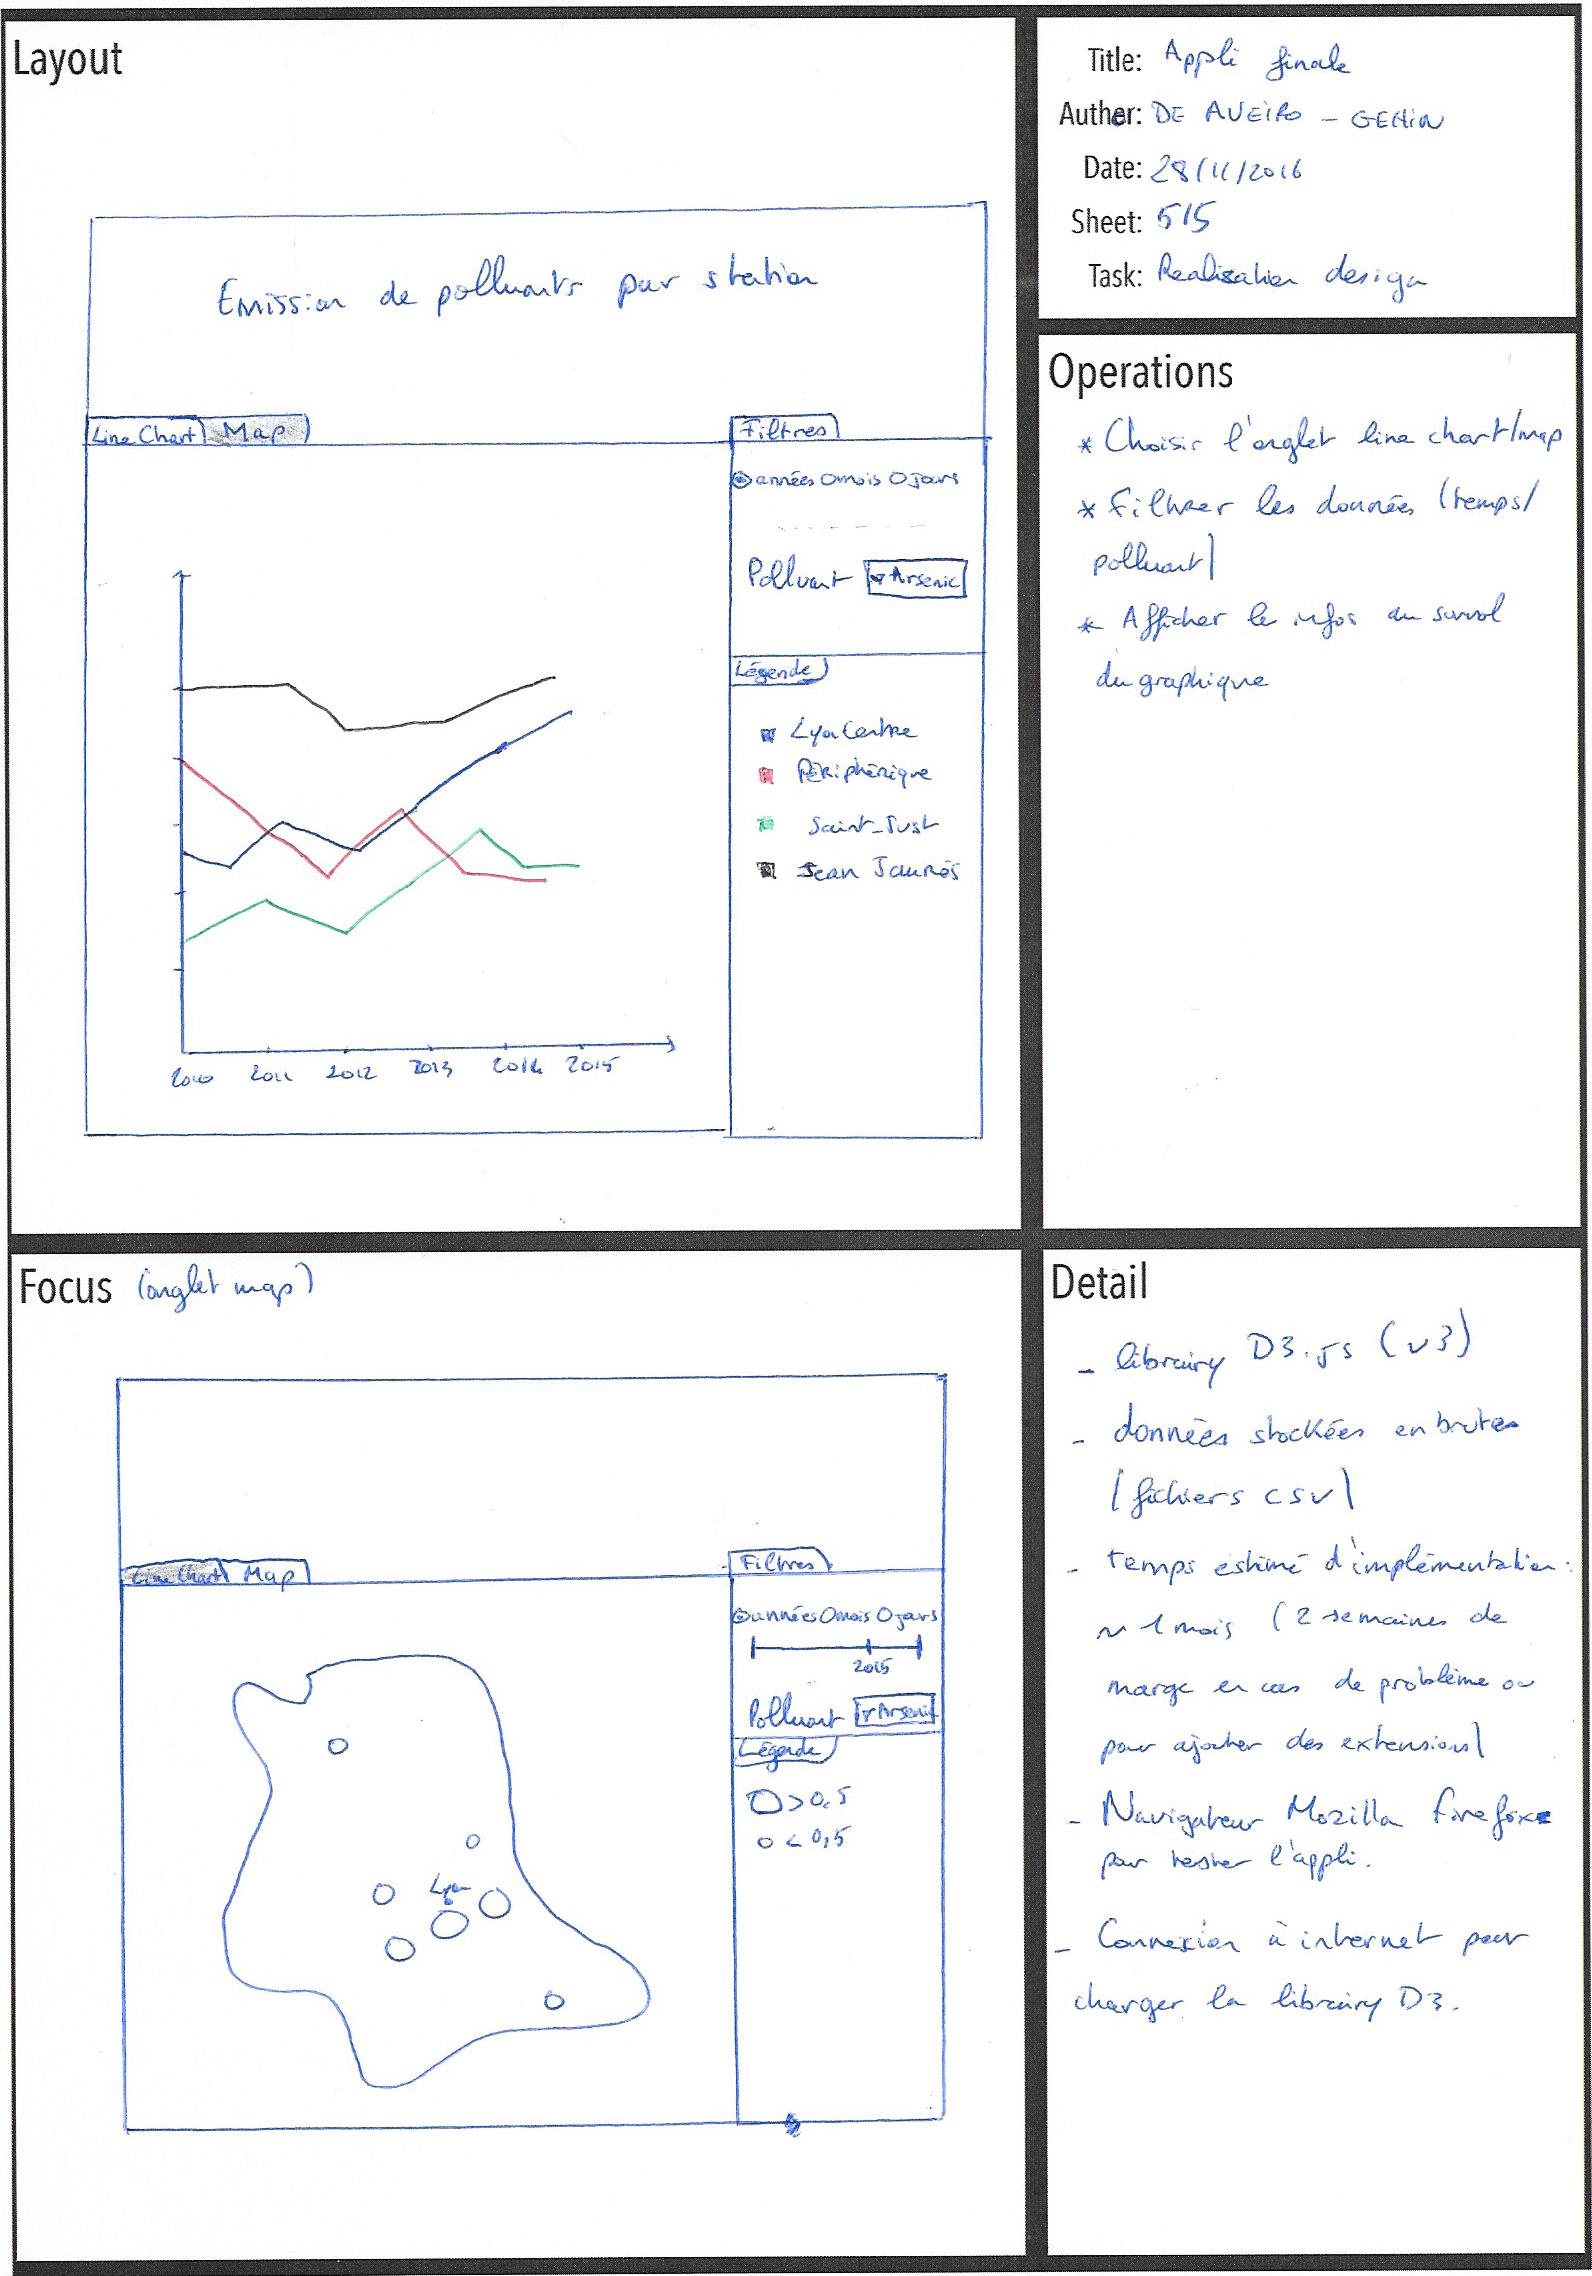 Layout
Emission de polluants par station
Line Chart Map
Filtres
années mois jours
Polluant Arsenic
Légende
Lyon Centre
Périphérique
Saint-Just
Jean Jaurès
2010 2011 2012 2013 2014 2015
Title: Appli finale
Auther: DE AVEIRO - GEHIN
Date: 28/11/2016
Sheet: 5/5
Task: Realisation design
Operations
* Choisir l'onglet line chart/map
* Filtrer les données (temps/
polluant)
* Afficher les infos au survol
du graphique
Focus (onglet map)
Line Chart Map
Filtres
années mois jours
2015
Polluant Arsenic
Légende
> 0,5
< 0,5
Lyon
Detail
- librairy D3.js (v3)
- données stockées en brutes
(fichiers csv)
- temps estimé d'implémentation:
~ 1 mois (2 semaines de
marge en cas de problème ou
pour ajouter des extensions)
- Navigateur Mozilla Firefox
pour tester l'appli.
- Connexion à internet pour
charger la librairy D3.